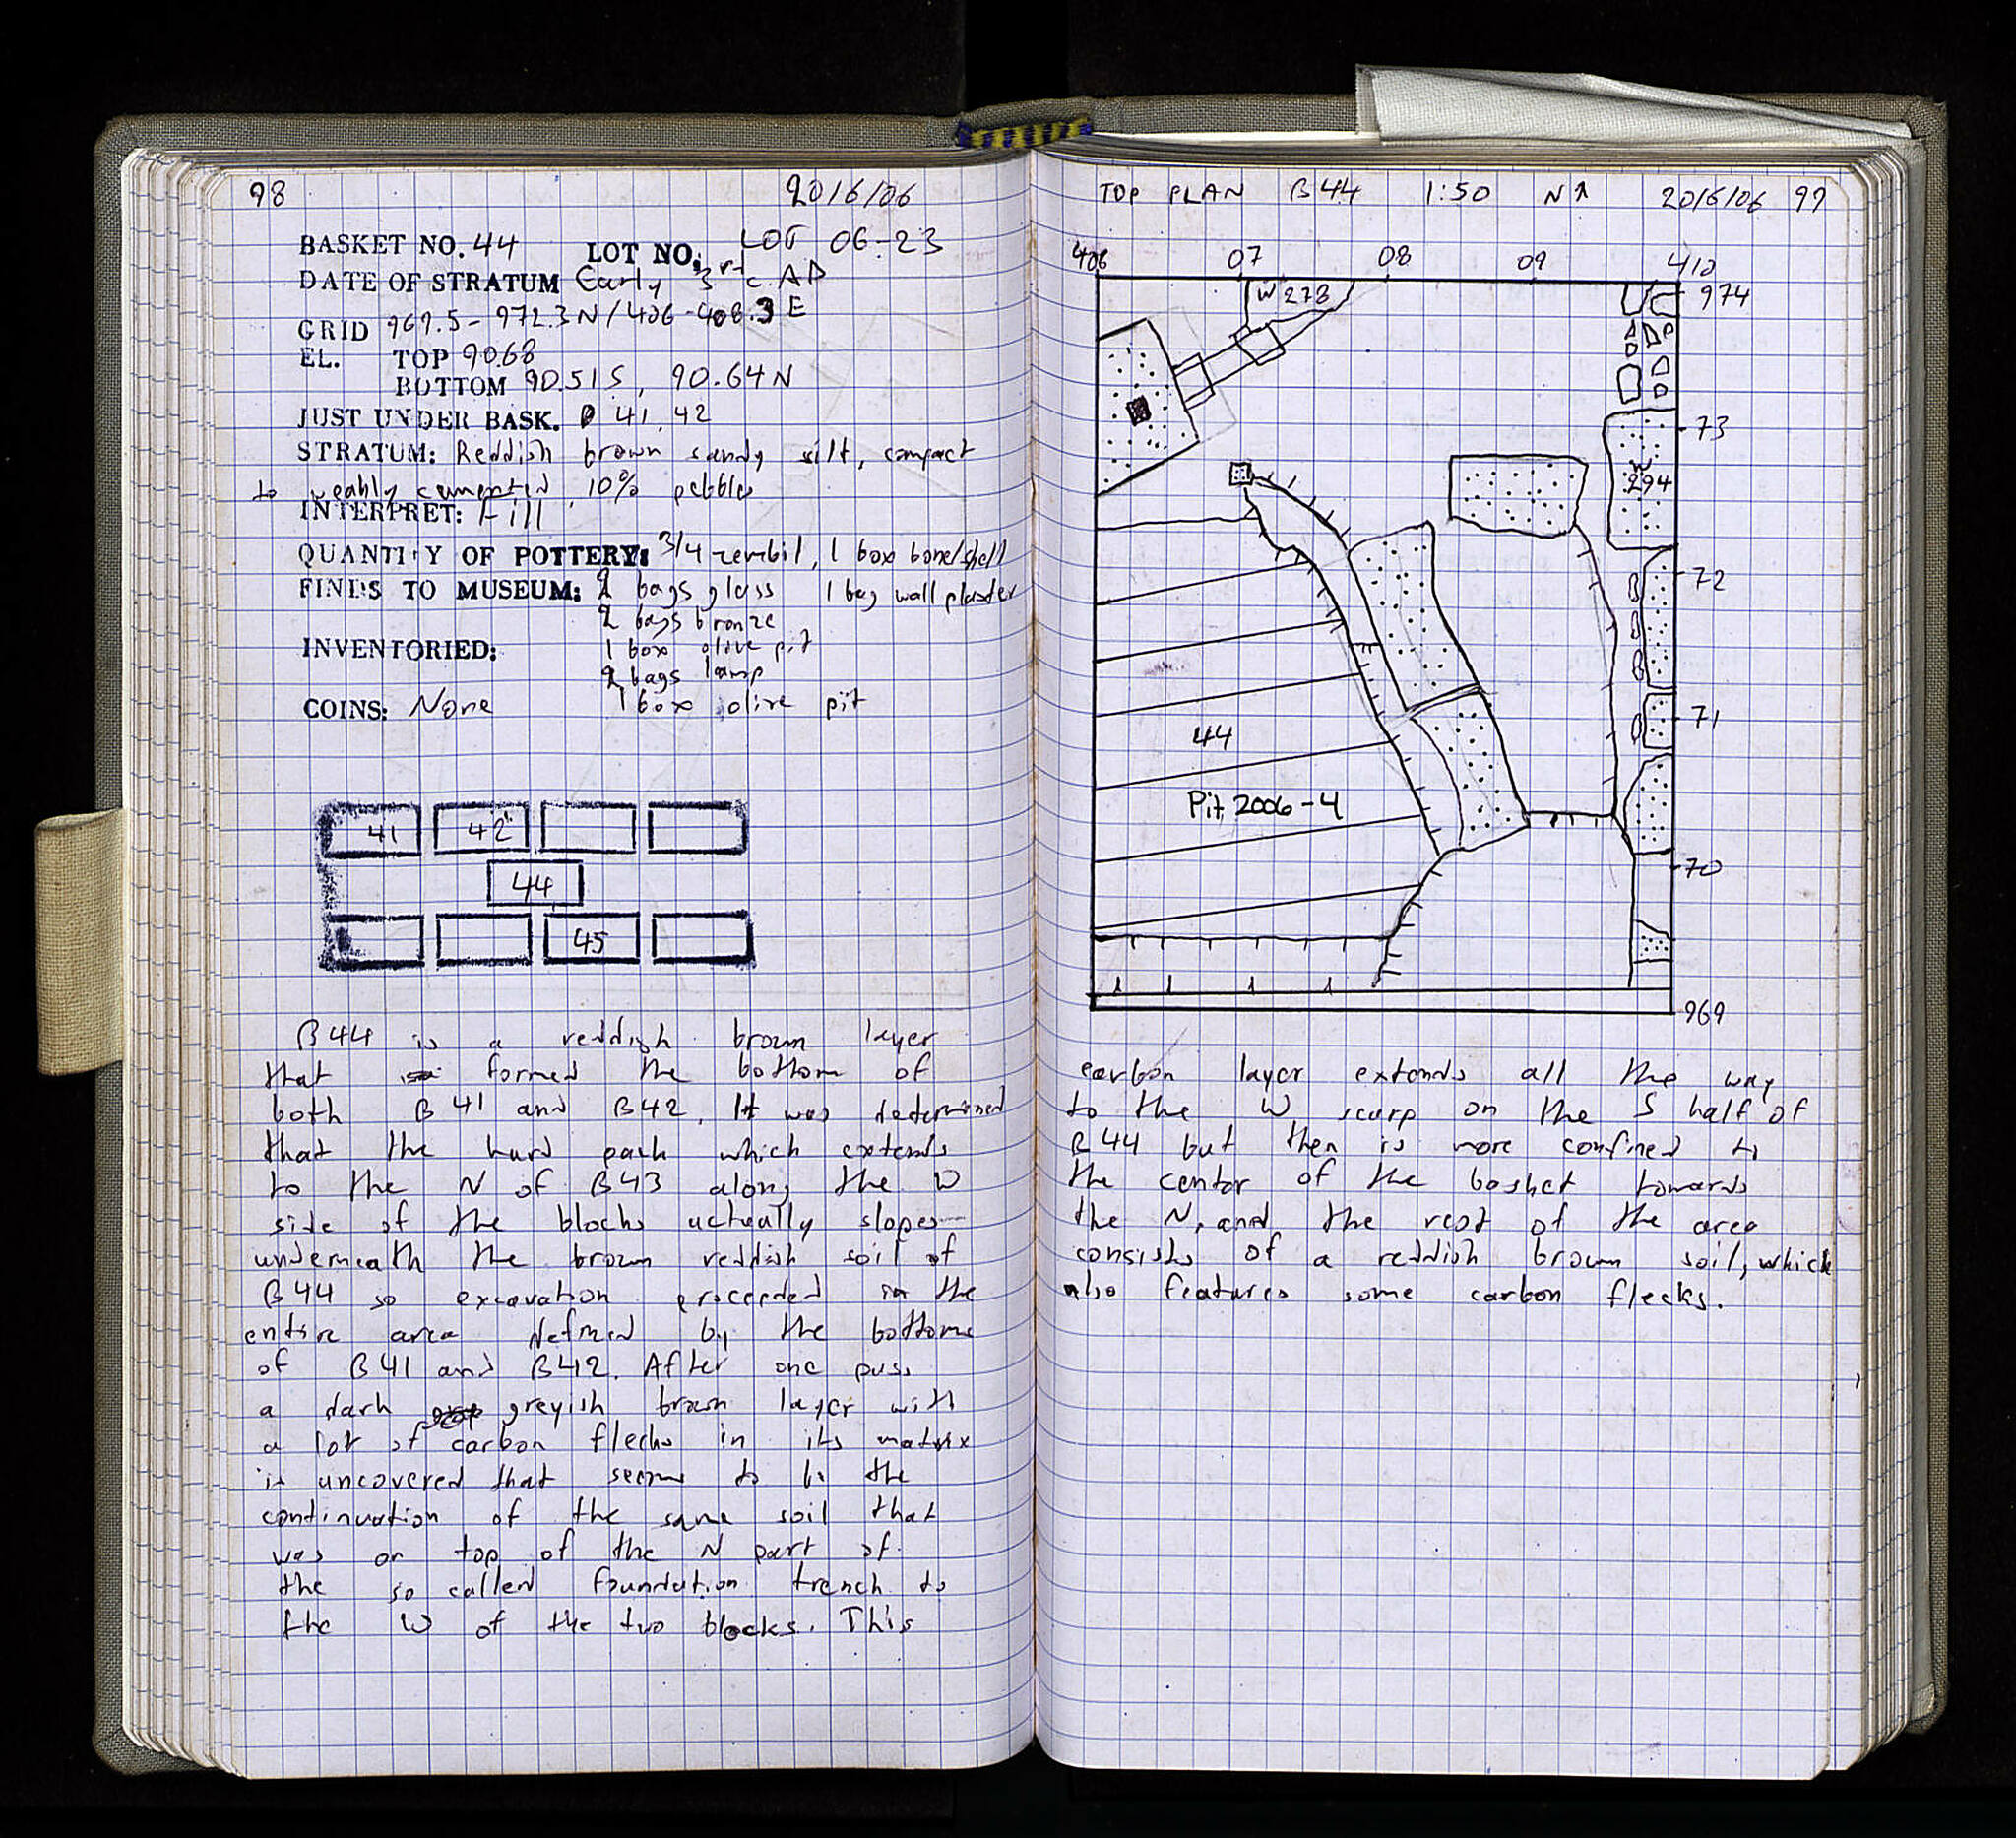 98 20/6/06
BASKET NO. 44 LOT NO. LOT 06-23
DATE OF STRATUM Early 3rd c. AD
GRID 969.5 - 972.3 N / 406 - 408.3 E
EL. TOP 90.68
BOTTOM 90.51 S, 90.64 N
JUST UNDER BASK. 41, 42
STRATUM: Reddish brown sandy silt, compact
to weakly cemented, 10% pebbles
INTERPRET: Fill
QUANTITY OF POTTERY: 3/4 zembil, 1 box bone/shell
FINDS TO MUSEUM: 2 bags glass 1 bag wall plaster
2 bags bronze
INVENTORIED: 1 box olive pit
2 bags lamp
COINS: None 1 box olive pit
41 42
44
45
B44 is a reddish brown layer
that formed the bottom of
both B41 and B42. It was determined
that the hard pack which extends
to the N of B43 along the W
side of the blocks actually slopes
underneath the brown reddish soil of
B44 so excavation proceeded in the
entire area defined by the bottoms
of B41 and B42. After one pass
a dark greyish brown layer with
a lot of carbon flecks in its matrix
is uncovered that seems to be the
continuation of the same soil that
was on top of the N part of
the so called foundation trench to
the W of the two blocks. This
TOP PLAN B44 1:50 N↑ 20/6/06 99
406 07 08 09 410
W 273 974
73
W
294
72
71
44
Pit 2006-4
70
969
carbon layer extends all the way
to the W scarp on the S half of
B44 but then is more confined to
the center of the basket towards
the N, and the rest of the area
consists of a reddish brown soil, which
also features some carbon flecks.